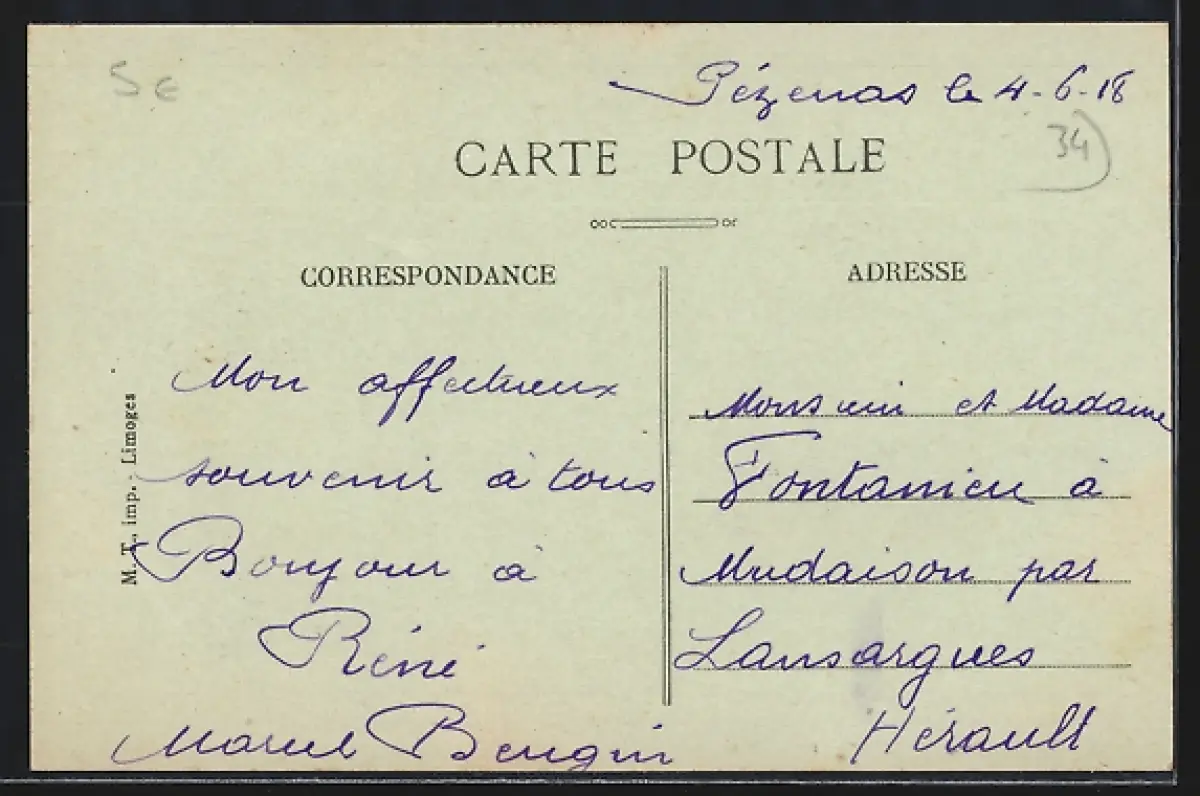 5 €
Pézenas le 4-6-18
34
CARTE POSTALE
CORRESPONDANCE
ADRESSE
Mon affectueux
souvenir à tous
Bonjour à
Réné
Marcel
M. T. imp. - Limoges
Monsieur et Madame
Fontanieu à
Mudaison par
Lansargues
Hérault